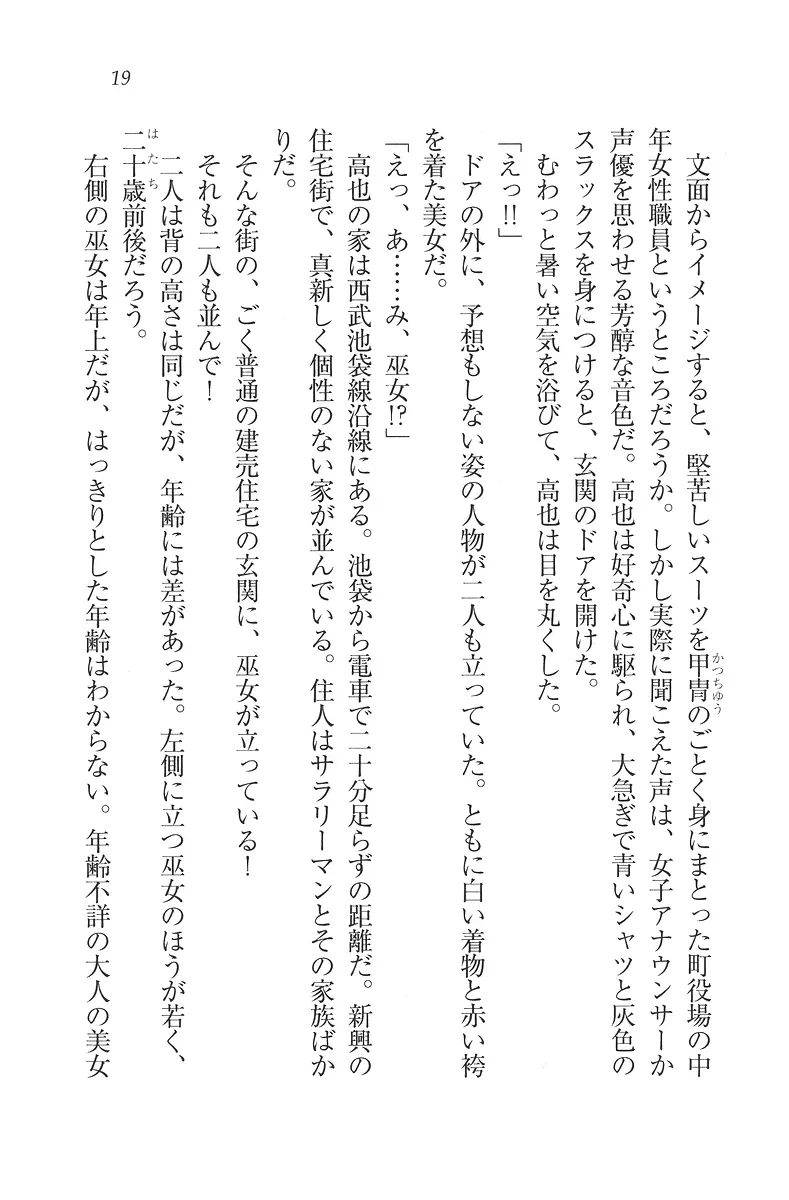 19
文面からイメージすると、堅苦しいスーツを甲冑のごとく身にまとった町役場の中
かつちゆう
年女性職員というところだろうか。しかし実際に聞こえた声は、女子アナウンサーか
声優を思わせる芳醇な音色だ。高也は好奇心に駆られ、大急ぎで青いシャツと灰色の
スラックスを身につけると、玄関のドアを開けた。
むわっと暑い空気を浴びて、高也は目を丸くした。
「えっ!!」
ドアの外に、予想もしない姿の人物が二人も立っていた。ともに白い着物と赤い袴
を着た美女だ。
「えっ、あ……み、巫女!?」
高也の家は西武池袋線沿線にある。池袋から電車で二十分足らずの距離だ。新興の
住宅街で、真新しく個性のない家が並んでいる。住人はサラリーマンとその家族ばか
りだ。
そんな街の、ごく普通の建売住宅の玄関に、巫女が立っている！
それも二人も並んで！
二人は背の高さは同じだが、年齢には差があった。左側に立つ巫女のほうが若く、
二十歳前後だろう。
はたち
右側の巫女は年上だが、はっきりとした年齢はわからない。年齢不詳の大人の美女